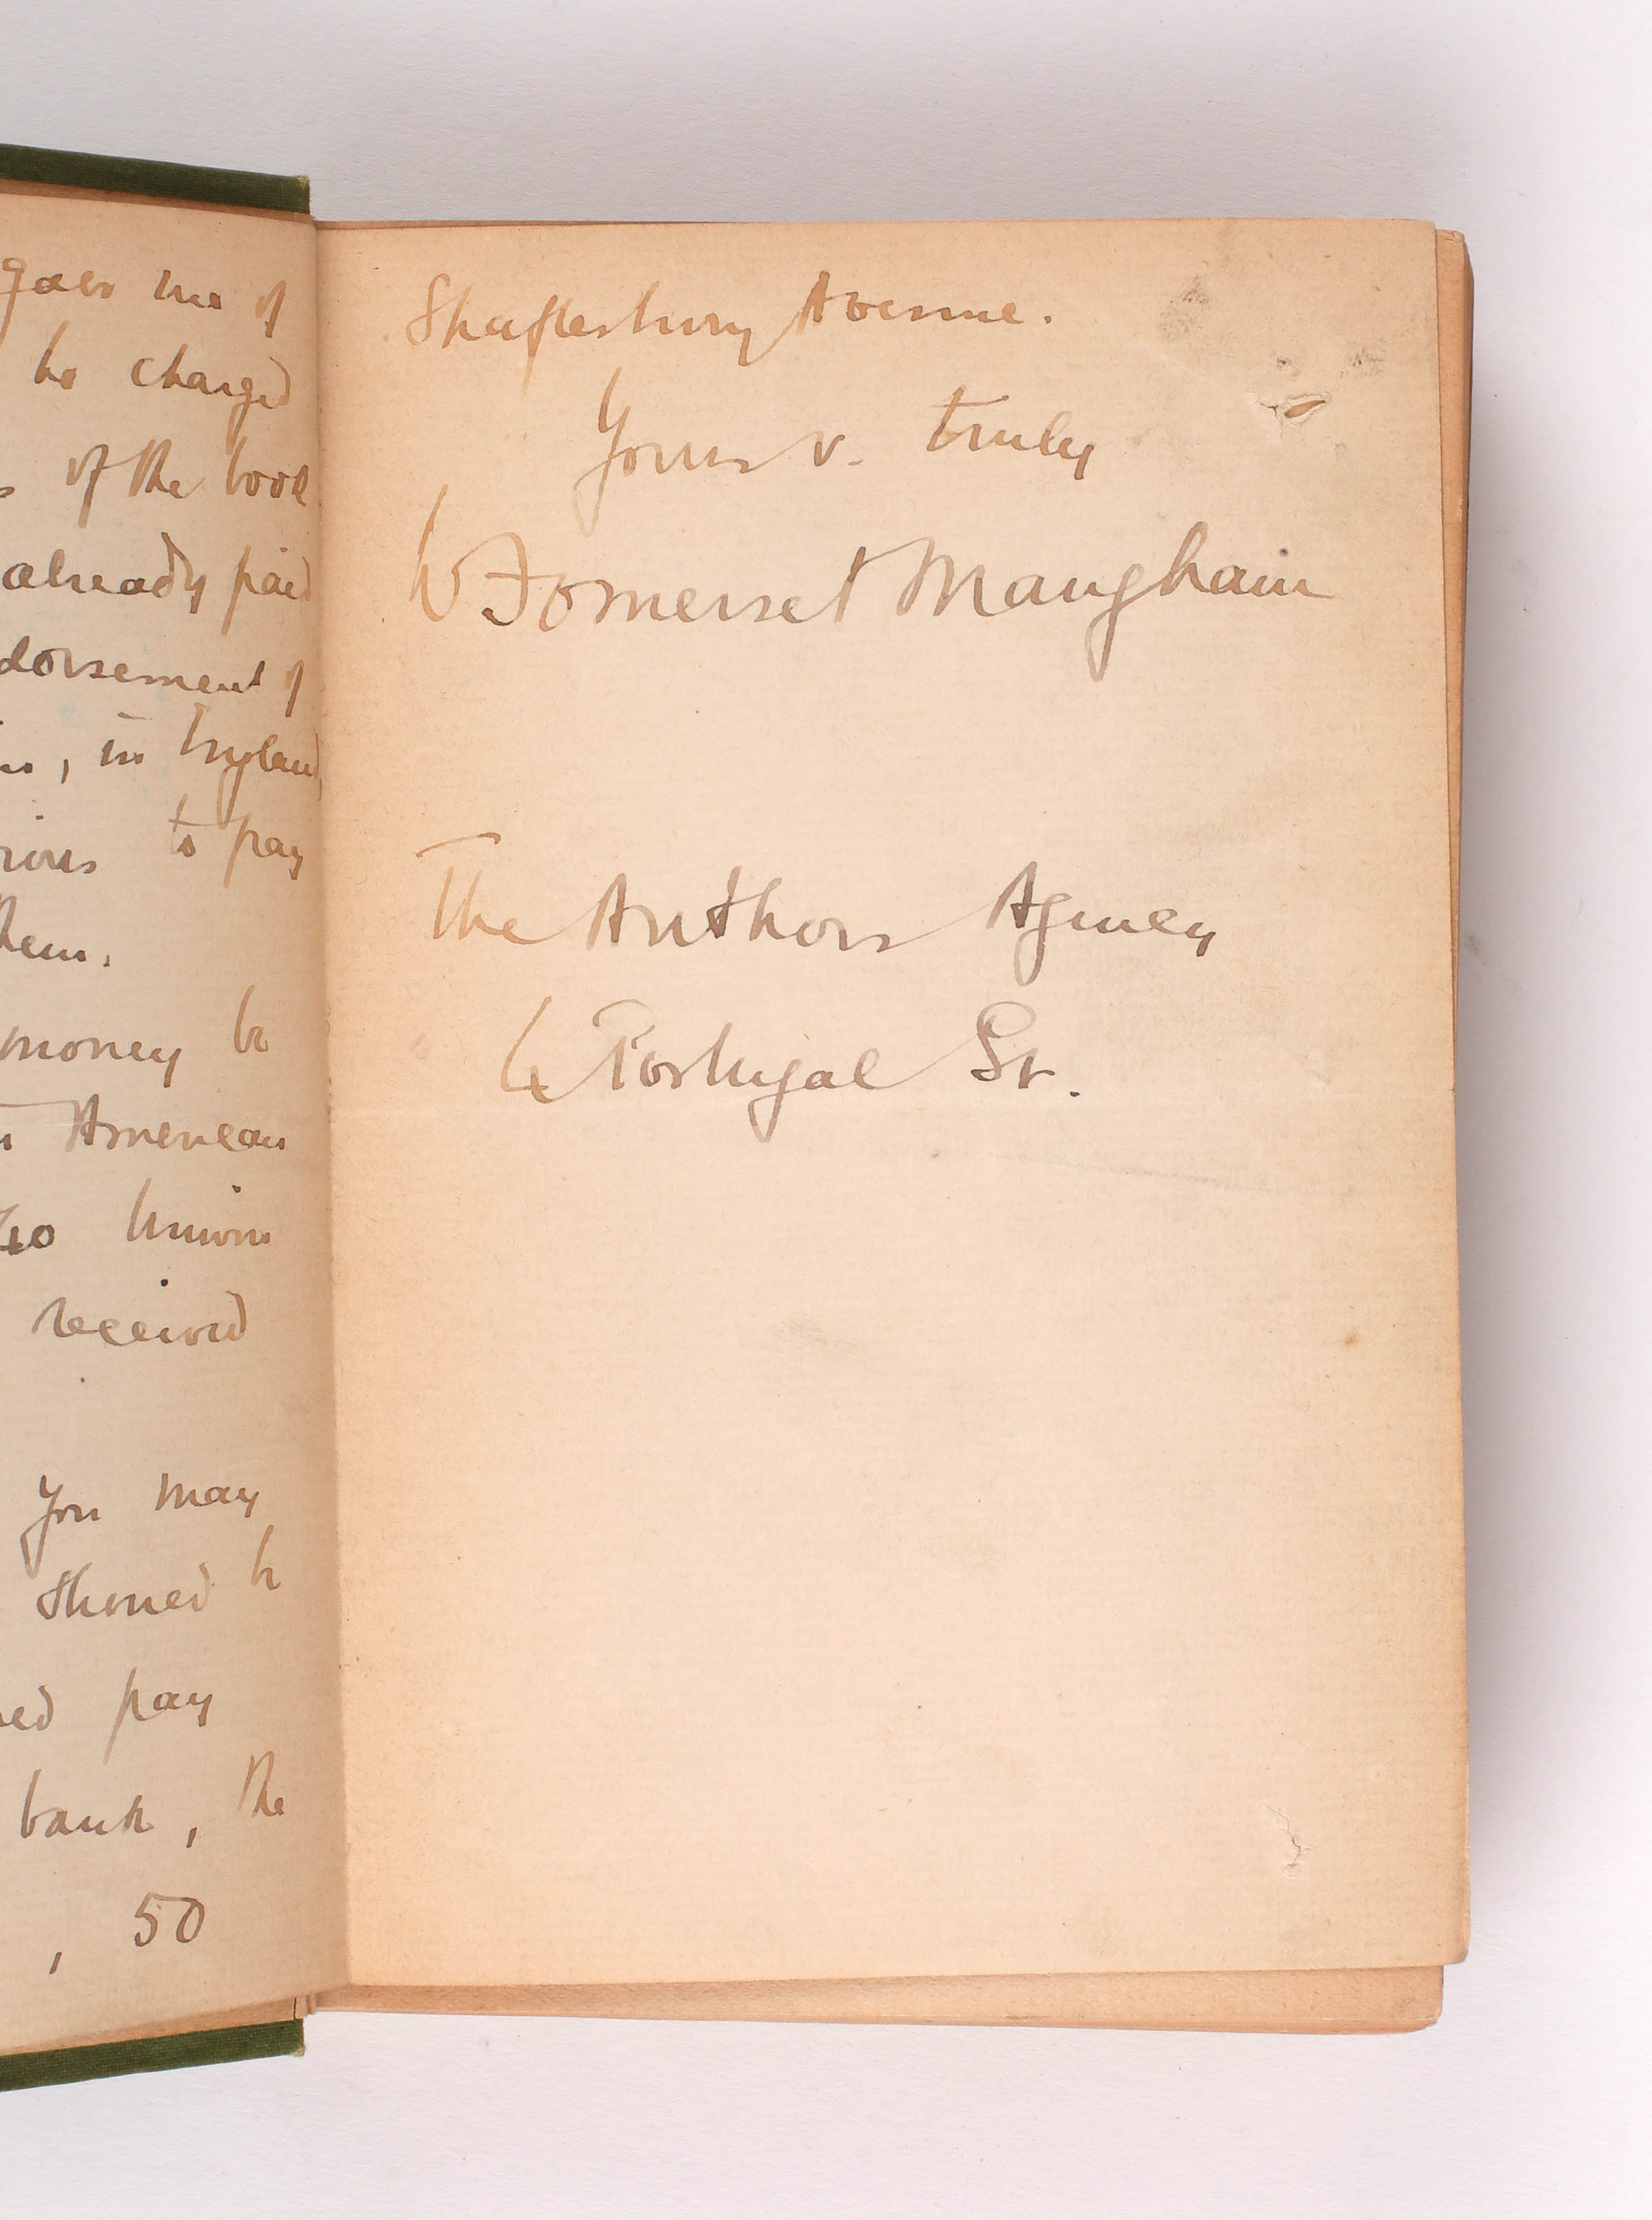 gave me of
be charged
of the book
already paid
dorsement of
, in England,
to pay
them.
money be
American
40
received
You may
should be
pay
bank, the
, 50
Shaftesbury Avenue.
Yours v. truly
W Somerset Maugham
The Authors Agency
4 Portugal St.